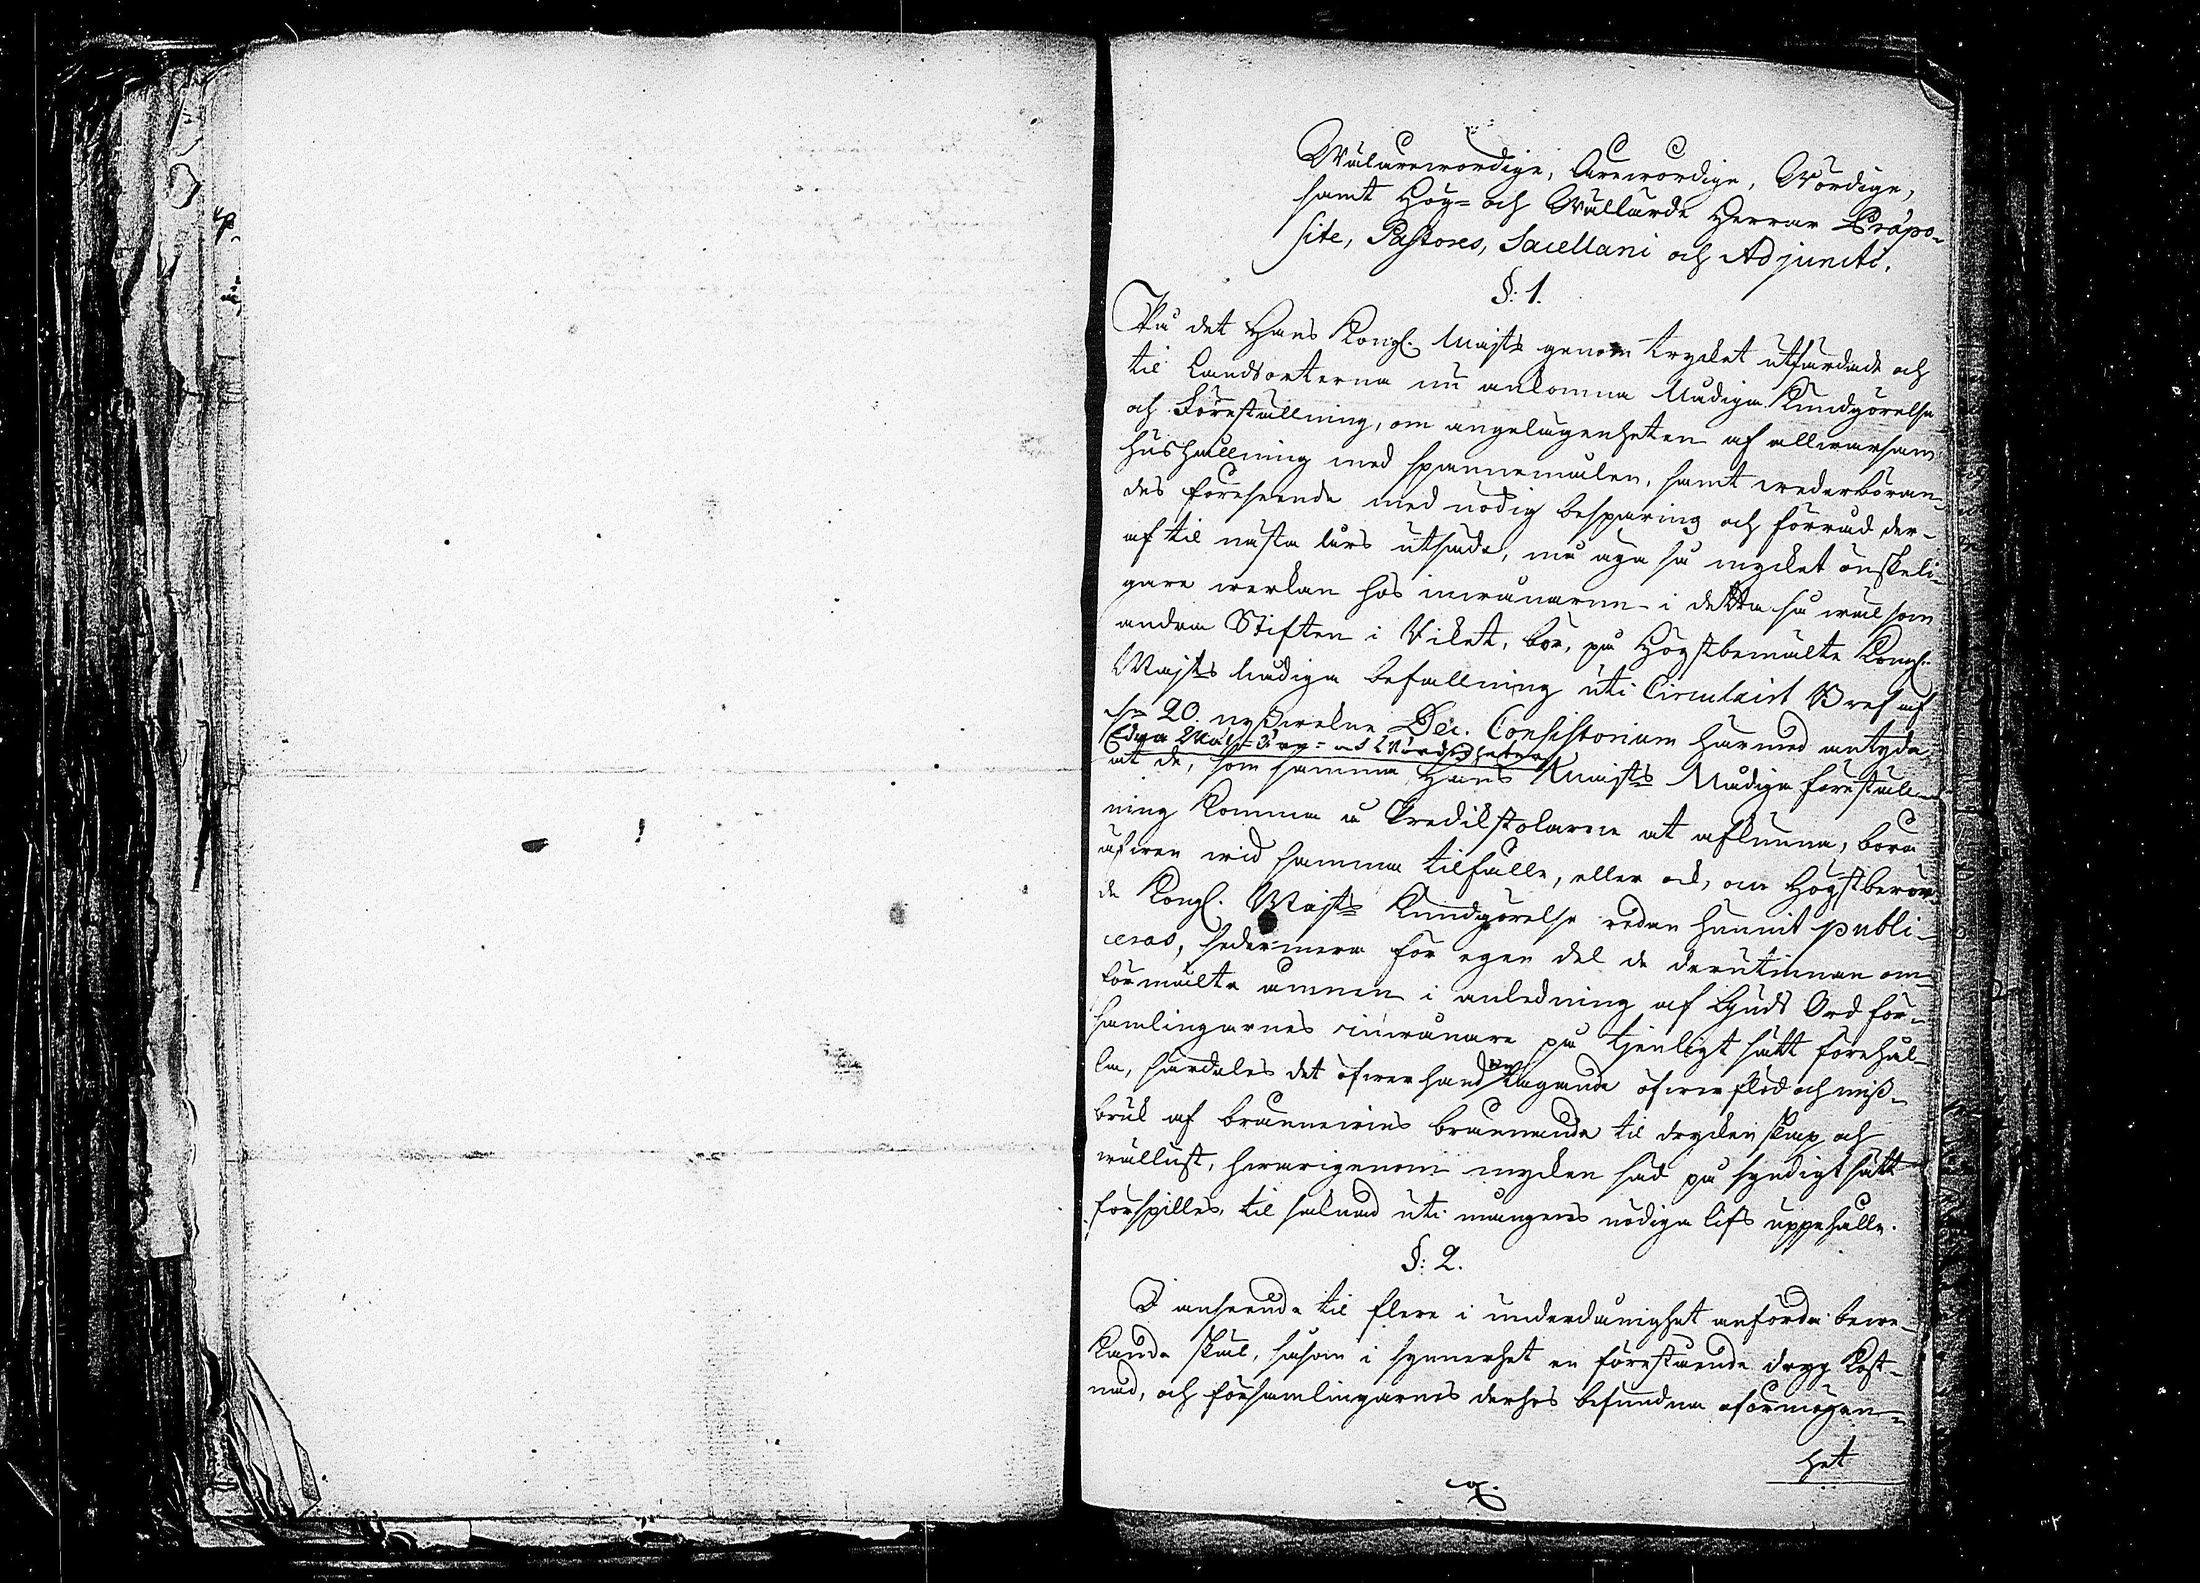 Wälärewördige, Ärewördige, Wördige,
samt Hög- och Wällärde Herrar Präpo-
site, Pastores, Sacellani och Adjuncti.
§: 1.
På det Hans Kongl. Majts genom trycket utfärdade och
til Landsorterna nu ankomna Nådiga Kundgörelse
och Föreställning, om angelägenheten af allmän sam
hushållning med spannemålen, samt wederböran-
des föreseende med nödig besparing och förråd der-
af til nästa års utsäde, må äga så mycket önskeli-
gare werkan hos inwånarne i detta så wäl som
andra Stiften i Riket, bör, på Högstbemälte Kongl.
Majts Nådiga befallning uti Circulairt Bref af
den 20. nystwekne Dec. Consistorium härmed antyda
Edra Wäl- Ärw- och Wördigheter
at de, som samma Hans K Majts Nådiga föreställ-
ning komma å Predikstolarne at aflämna, böra
äfwen wid samma tilfälle, eller ock, om Högstberör-
de Kongl. Majts Kundgörelse redan hunnit publi-
ceras, sedermera för egen del de derutinnan om-
förmälte ämnen i anledning af Guds Ord för-
samlingarnes inwånare på tjenligt sätt förehål-
la, särdeles det öfwerhand tagande öfwerflöd och miss-
bruk af brännewins brännande til dryckenskap och
wällust, hwarigenom mycken säd på syndigt sätt
förspilles, til saknad uti mångens nödiga lifs uppehälle.
§: 2.
I anseende til flere i underdånighet anförda bewe-
kande skäl, såsom i synnerhet en förestående dryg kost-
nad, och församlingarnes derhos befundna oförmögen-
het